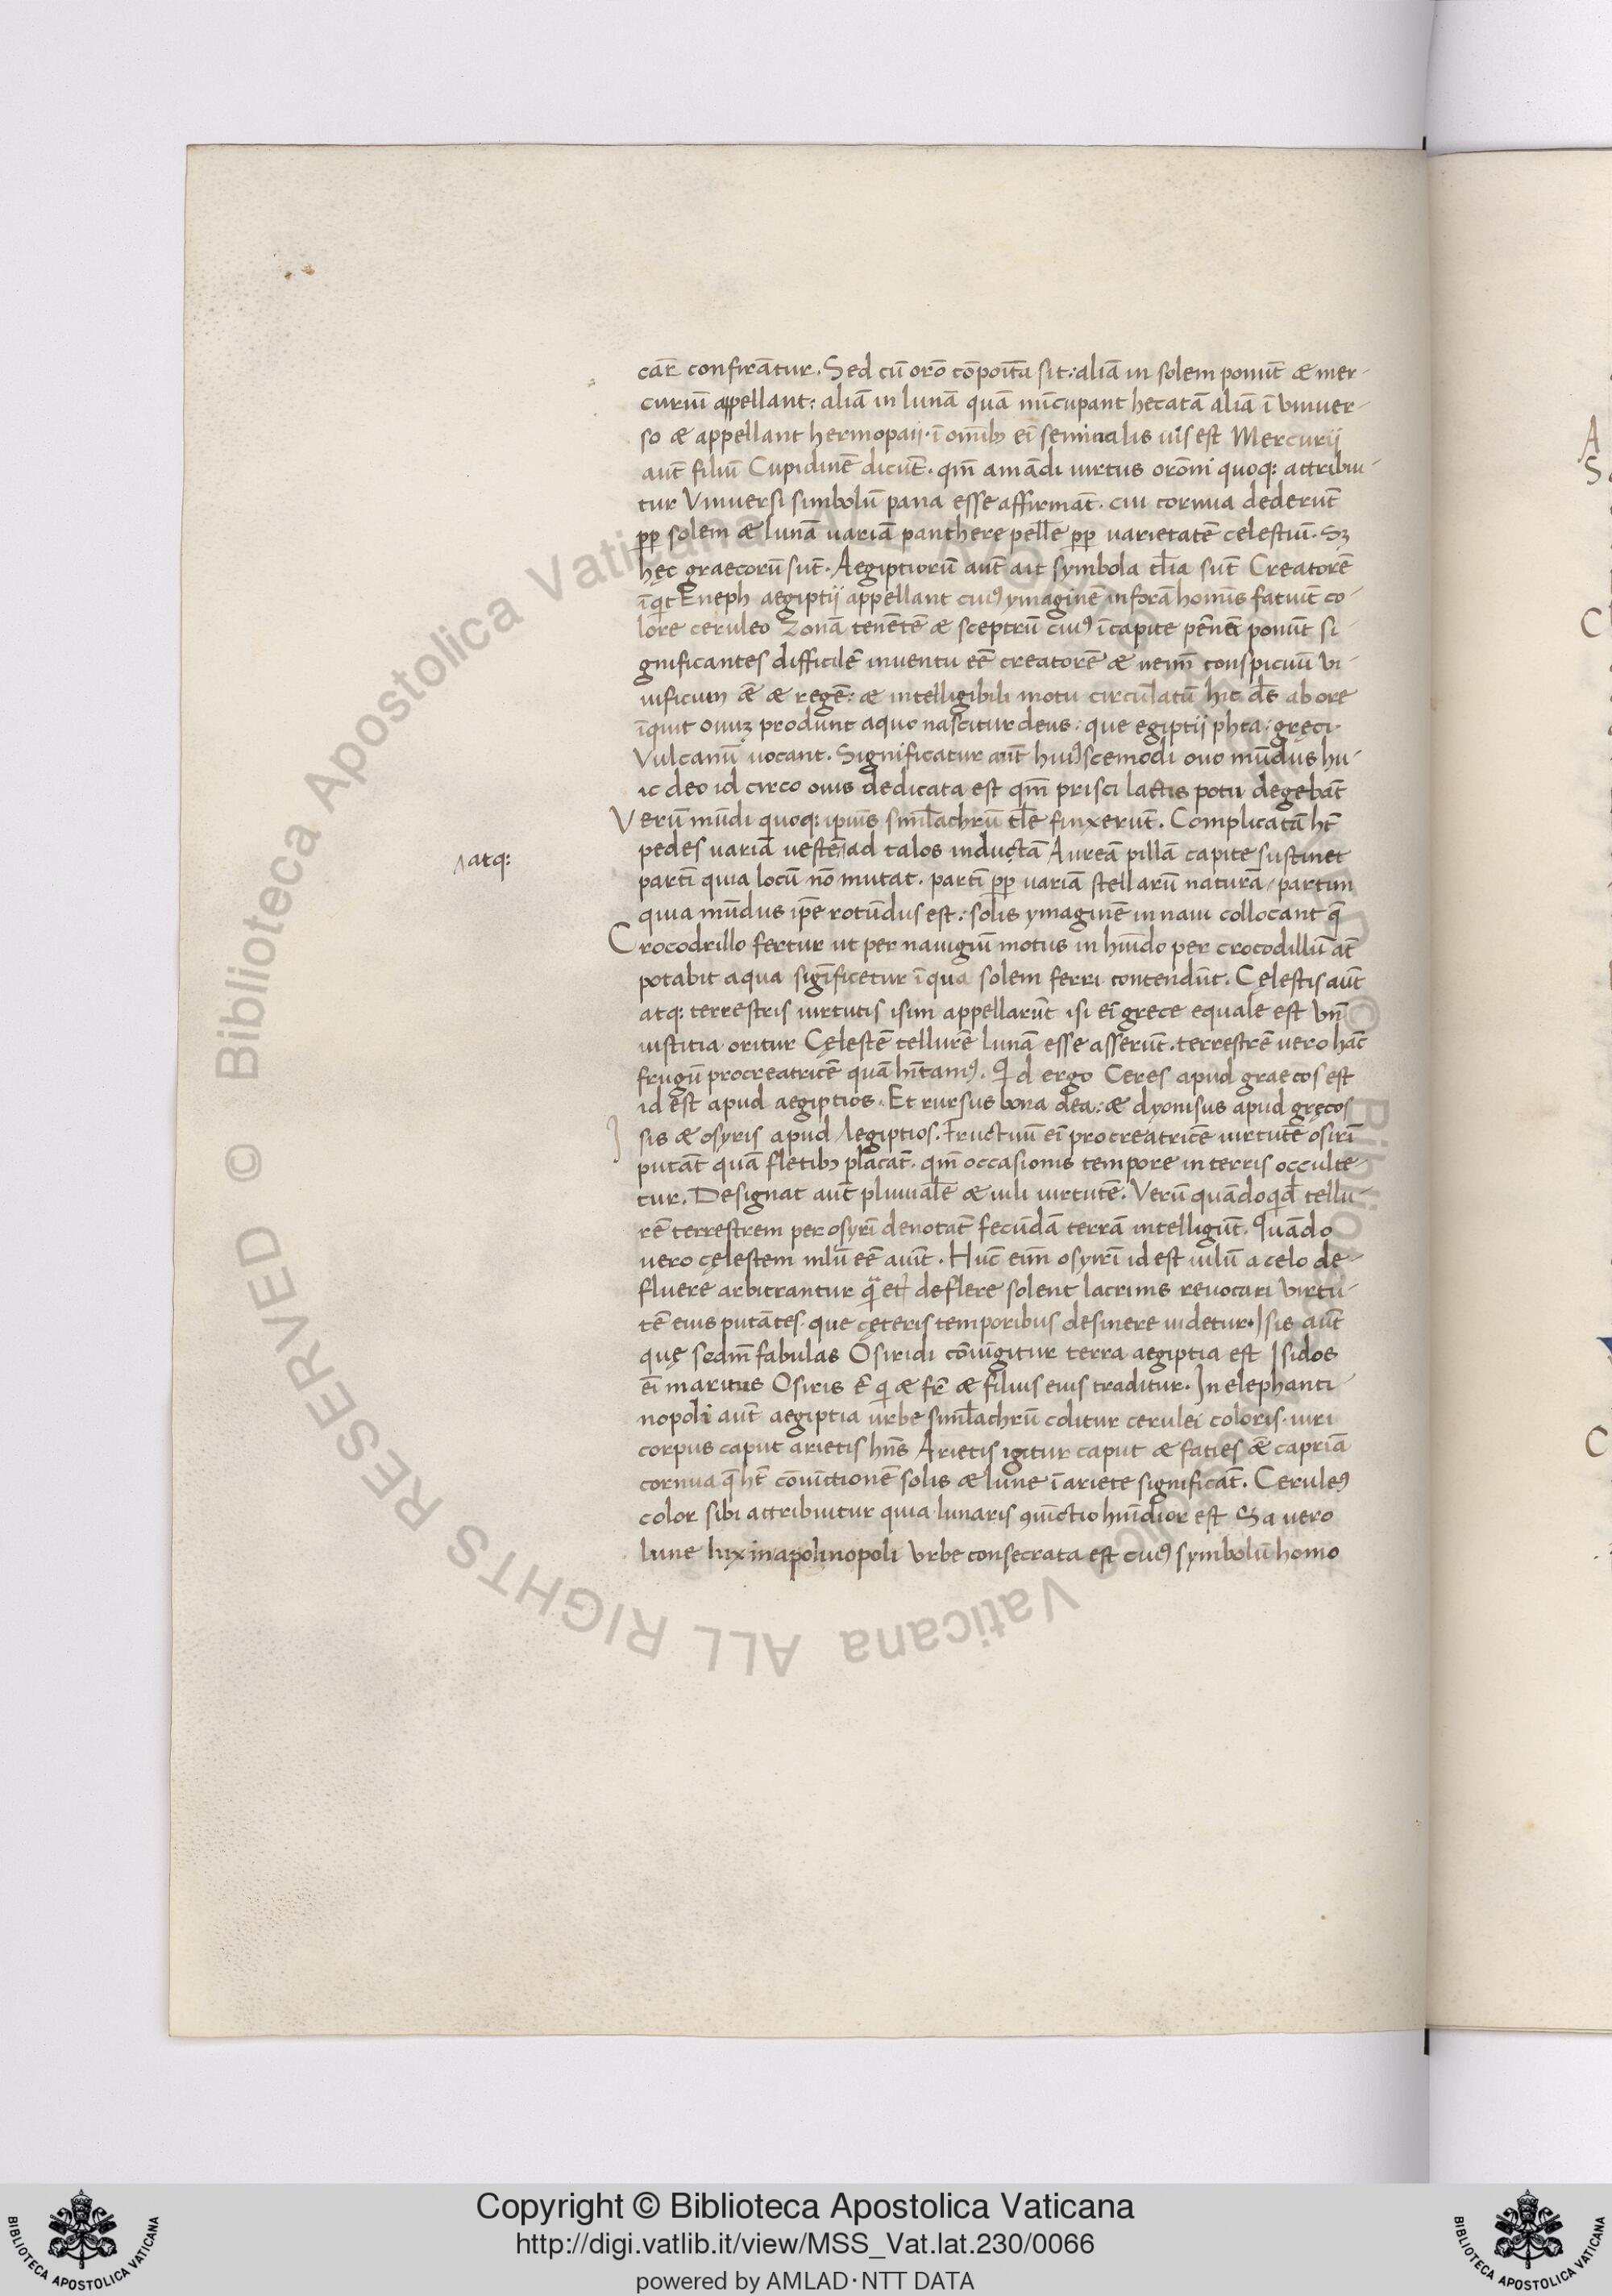 car̄ confirātur. Sed cū orō cōpoīta sit: aliā in solem ponūt & mer-
curiū appellant: aliā in lunā quā nūcupant hecatā aliā ī vniuer-
so & appellant hermopaij. ī omībꝫ eī seminalis uīs est Mercurij
aūt filiū Cupidinē dicūt. qm̄ amādi uirtus orōni quoqꝫ attribui-
tur Vniuersi simbolū pana esse affirmāt. cui cornua dederūt
ꝓp̄ solem & lunā uariā panthere pellē ꝓp̄ uarietatē celestiū. Sꝫ
hęc graecorū sūt. Aegiptiorū aūt ait symbola tl̄ia sūt Creatorē
īqt̄ Eneph aegiptij appellant cuiꝰ ymaginē in forā homīs faciūt co-
lore ceruleo Zonā tenētē & sceptrū cuiꝰ ī capite pēnā ponūt si-
gnificantes difficilē inuentu eē creatorē & nemī conspicuū vi-
uificum āc & regē: & intelligibili motu circulatū hic dс̄ ab ore
īquit ouuꝫ produnt a quo nascitur deus: que egiptij phta: gręci.
Vulcanū uocant. Significatur aūt huiꝰscemodi ouo mūdus hu-
ic deo id circo ouis dedicata est qm̄ prisci lactis potu degebāt
Verū mūdi quoqꝫ ipiūs siml̄achrū tl̄e finxerūt. Complicatā hт̄
pedes uariā uestē ad talos inductā Aureā pillā capite sustinet
partī quia locū nō mutat. partī ꝓp̄ uariā stellarū naturā, partim
quia mūdus ip̄e rotūdus est: solis ymaginē in naui collocant q̄
Crocodrillo fertur ut per nauigiū motus in huīdo per crocodillū āt
potabit aqua sigīficetur ī qua solem ferri contendūt. Cęlestis aūt
atqꝫ terrestris uirtutis isim appellarūt isi eī grece equale est vn̄
iustitia oritur Cęlestē tellurē lunā esse asserūt. terrestrē uero hāc
frugū procreatricē quā hītamꝰ. Qd ergo Ceres apud graecos est
id est apud aegiptios. Et rursus bona dea: & dyonisus apud gręcos
Isis & osyris apud Aegiptios. Fructuū eī procreatricē uirtutē osirī
putāt quā fletibꝫ placāt. qm̄ occasionis tempore in terris occulte-
tur. Designat aūt pluuialē & nili uirtutē. Verū quādoqd̄ tellu-
rē terrestrem per osyrī denotāt fecūdā terrā intelligūt. Quādo
uero cęlestem nilū eē aiūt. Hūc eim̄ osyrī id est nilū a celo de-
fluere arbitrantur q̄ et deflere solent lacrimis reuocari virtu-
tē eius putātes. que cęteris temporibus desinere uidetur. Isis aūt
quę scdm̄ fabulas Osiridi cōiūgitur terra aegiptia est Isidos
eī maritus Osiris ē qi & fr̄ & filius eius traditur. In elephanti-
nopoli aūt aegiptia urbe siml̄achrū colitur cerulei coloris. uiri
corpus caput arietis hn̄s Arietis igitur caput & facies āc capriā
cornua q̄ hт̄ cōiūctionē solis & lune ī ariete significāt. Ceruleꝰ
color sibi attribuitur quia lunaris ꝯiūctio huīdior est Sa uero
lune lux in apolinopoli Vrbe consecrata est cuiꝰ symbolū homo
atqꝫ
© Biblioteca Apostolica Vaticana ALL RIGHTS RESERVED
Copyright © Biblioteca Apostolica Vaticana
http://digi.vatlib.it/view/MSS_Vat.lat.230/0066
powered by AMLAD·NTT DATA
BIBLIOTECA APOSTOLICA VATICANA
BIBLIOTECA APOSTOLICA VATICANA